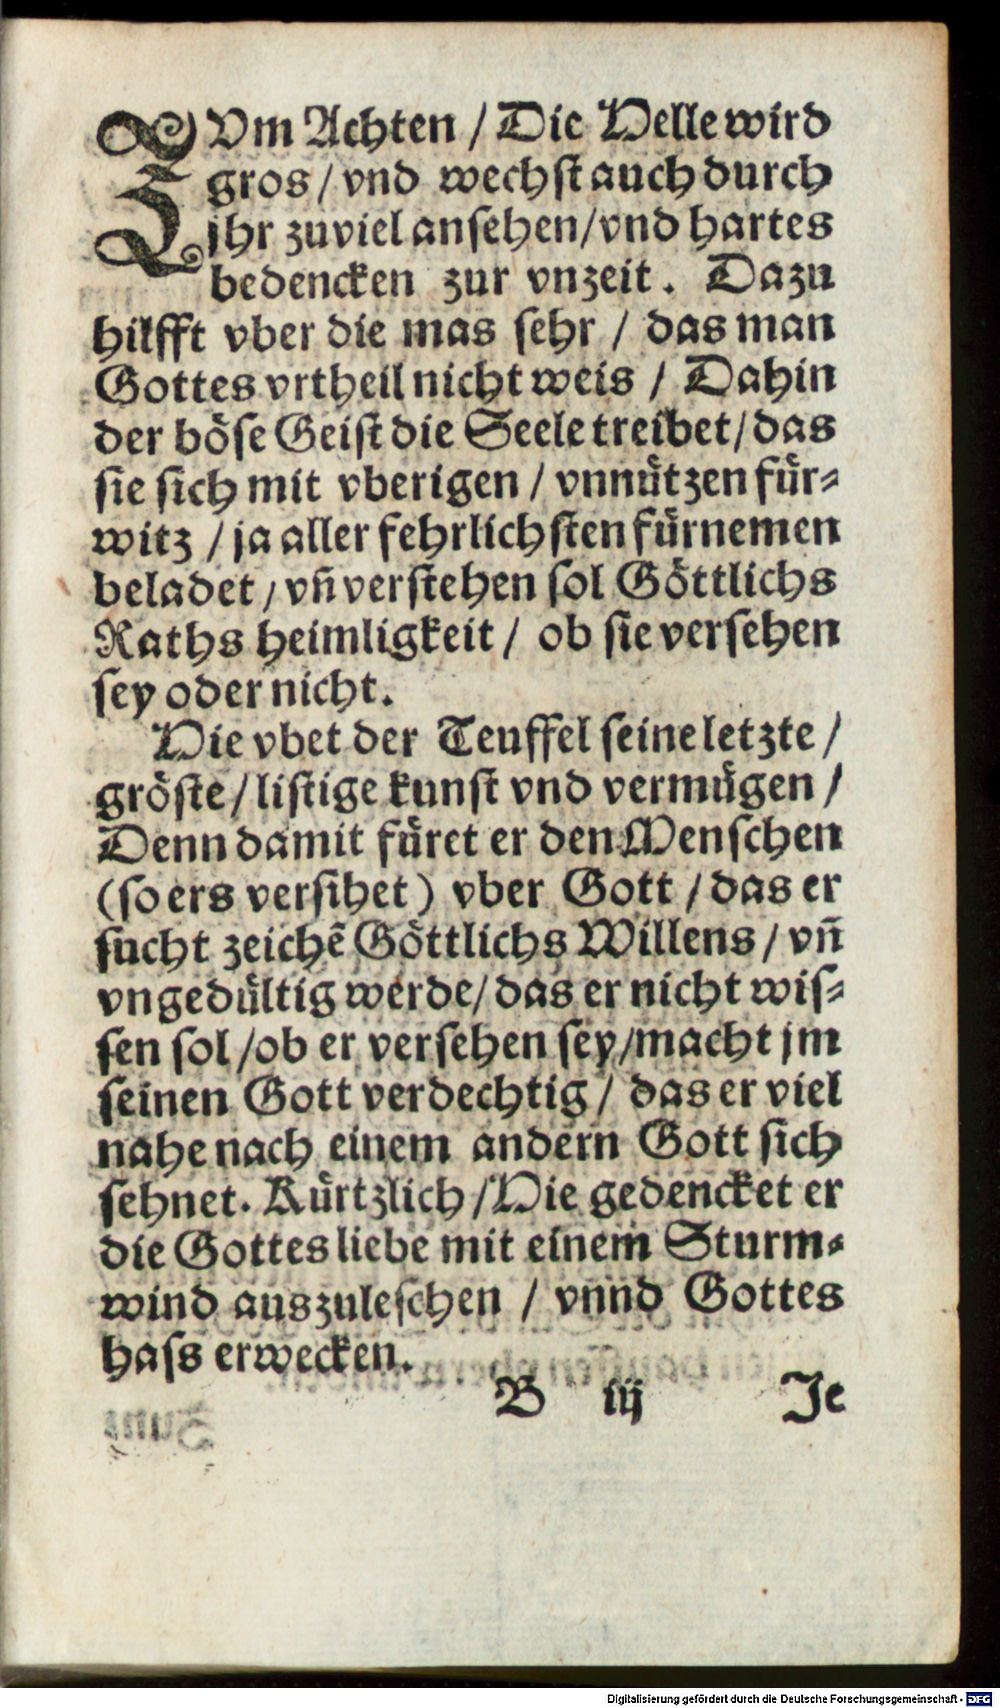 ZVm Achten / Die Helle wird
gros / vnd wechst auch durch
jhr zuviel ansehen / vnd hartes
bedencken zur vnzeit. Dazu
hilfft vber die mas sehr / das man
Gottes vrtheil nicht weis / Dahin
der böse Geist die Seele treibet / das
sie sich mit vberigen / vnnützen für-
witz / ja aller fehrlichsten fürnemen
beladet / vñ verstehen sol Göttlichs
Raths heimligkeit / ob sie versehen
sey oder nicht.
Hie vbet der Teuffel seine letzte /
gröste / listige kunst vnd vermügen /
Denn damit füret er den Menschen
(so ers versihet) vber Gott / das er
sucht zeichẽ Göttlichs Willens / vñ
vngedültig werde / das er nicht wis-
sen sol / ob er versehen sey / macht jm
seinen Gott verdechtig / das er viel
nahe nach einem andern Gott sich
sehnet. Kürtzlich / Hie gedencket er
die Gottes liebe mit einem Sturm-
wind auszuleschen / vnnd Gottes
hass erwecken.
B iij Je
Digitalisierung gefördert durch die Deutsche Forschungsgemeinschaft - DFG